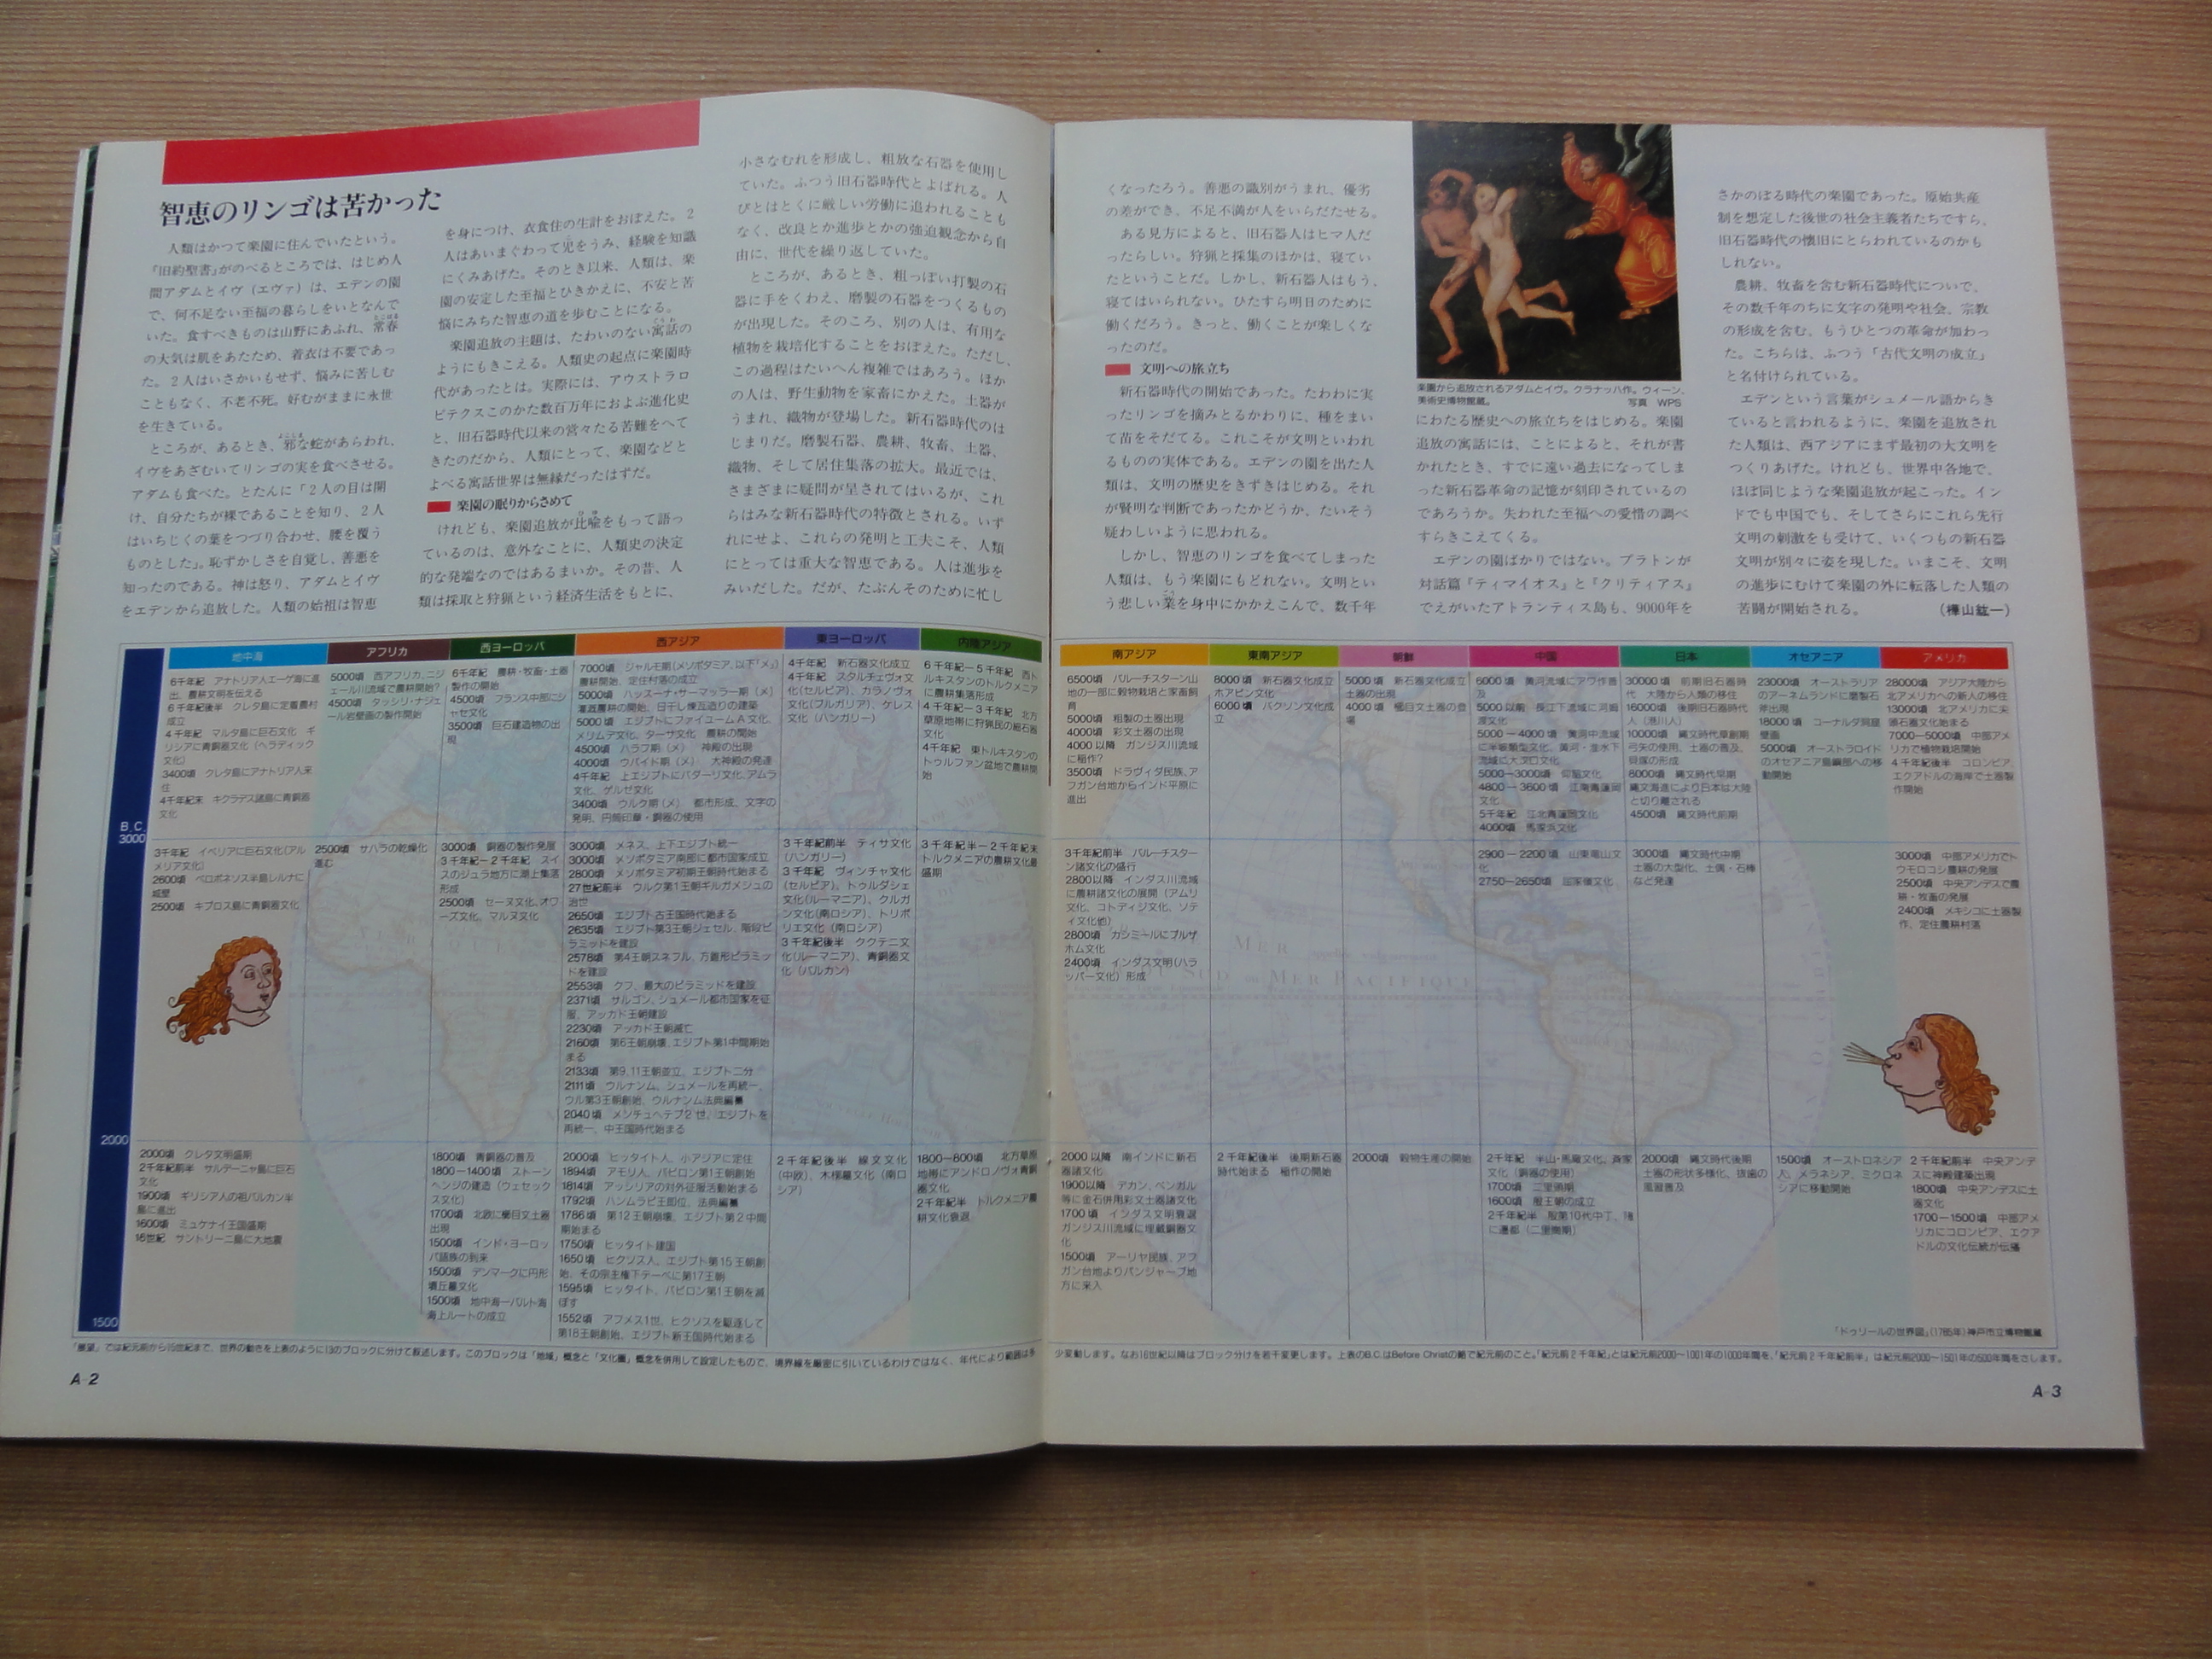 智恵のリンゴは苦かった
人類はかつて楽園に住んでいたという。
『旧約聖書』がのべるところでは、はじめ人
間アダムとイヴ（エヴァ）は、エデンの園
で、何不足ない至福の暮らしをいとなんで
いた。食すべきものは山野にあふれ、常春
の大気は肌をあたため、着衣は不要であっ
た。2人はいさかいもせず、悩みに苦しむ
こともなく、不老不死。好むがままに永世
を生きている。
ところが、あるとき、邪な蛇があらわれ、
イヴをあざむいてリンゴの実を食べさせる。
アダムも食べた。とたんに「2人の目は開
け、自分たちが裸であることを知り、2人
はいちじくの葉をつづり合わせ、腰を覆う
ものとした」。恥ずかしさを自覚し、善悪を
知ったのである。神は怒り、アダムとイヴ
をエデンから追放した。人類の始祖は智恵
を身につけ、衣食住の生計をおぼえた。2
人はあいまぐわって児をうみ、経験を知識
にくみあげた。そのとき以来、人類は、楽
園の安定した至福とひきかえに、不安と苦
悩にみちた智恵の道を歩むことになる。
楽園追放の主題は、たわいのない寓話の
ようにもきこえる。人類史の起点に楽園時
代があったとは。実際には、アウストラロ
ピテクスこのかた数百万年におよぶ進化史
と、旧石器時代以来の営々たる苦難をへて
きたのだから、人類にとって、楽園などと
よべる寓話世界は無縁だったはずだ。
楽園の眠りからさめて
けれども、楽園追放が比喩をもって語っ
ているのは、意外なことに、人類史の決定
的な発端なのではあるまいか。その昔、人
類は採取と狩猟という経済生活をもとに、
小さなむれを形成し、粗放な石器を使用し
ていた。ふつう旧石器時代とよばれる。人
びとはとくに厳しい労働に追われることも
なく、改良とか進歩とかの強迫観念から自
由に、世代を繰り返していた。
ところが、あるとき、粗っぽい打製の石
器に手をくわえ、磨製の石器をつくるもの
が出現した。そのころ、別の人は、有用な
植物を栽培化することをおぼえた。ただし、
この過程はたいへん複雑ではあろう。ほか
の人は、野生動物を家畜にかえた。土器が
うまれ、織物が登場した。新石器時代のは
じまりだ。磨製石器、農耕、牧畜、土器、
織物、そして居住集落の拡大。最近では、
さまざまに疑問が呈されてはいるが、これ
らはみな新石器時代の特徴とされる。いず
れにせよ、これらの発明と工夫こそ、人類
にとっては重大な智恵である。人は進歩を
みいだした。だが、たぶんそのために忙し
くなったろう。善悪の識別がうまれ、優劣
の差ができ、不足不満が人をいらだたせる。
ある見方によると、旧石器人はヒマ人だ
ったらしい。狩猟と採集のほかは、寝てい
たということだ。しかし、新石器人はもう、
寝てはいられない。ひたすら明日のために
働くだろう。きっと、働くことが楽しくな
ったのだ。
文明への旅立ち
新石器時代の開始であった。たわわに実
ったリンゴを摘みとるかわりに、種をまい
て苗をそだてる。これこそが文明といわれ
るものの実体である。エデンの園を出た人
類は、文明の歴史をきずきはじめる。それ
が賢明な判断であったかどうか、たいそう
疑わしいように思われる。
しかし、智恵のリンゴを食べてしまった
人類は、もう楽園にもどれない。文明とい
う悲しい業を身中にかかえこんで、数千年
楽園から追放されるアダムとイヴ。クラナッハ作。ウィーン、
美術史博物館蔵。 写真 WPS
にわたる歴史への旅立ちをはじめる。楽園
追放の寓話には、ことによると、それが書
かれたとき、すでに遠い過去になってしま
った新石器革命の記憶が刻印されているの
であろうか。失われた至福への愛惜の調べ
すらきこえてくる。
エデンの園ばかりではない。プラトンが
対話篇『ティマイオス』と『クリティアス』
でえがいたアトランティス島も、9000年を
さかのぼる時代の楽園であった。原始共産
制を想定した後世の社会主義者たちですら、
旧石器時代の懐旧にとらわれているのかも
しれない。
農耕、牧畜を含む新石器時代についで、
その数千年のちに文字の発明や社会、宗教
の形成を含む、もうひとつの革命が加わっ
た。こちらは、ふつう「古代文明の成立」
と名付けられている。
エデンという言葉がシュメール語からき
ていると言われるように、楽園を追放され
た人類は、西アジアにまず最初の大文明を
つくりあげた。けれども、世界中各地で、
ほぼ同じような楽園追放が起こった。イン
ドでも中国でも、そしてさらにこれら先行
文明の刺激をも受けて、いくつもの新石器
文明が別々に姿を現した。いまこそ、文明
の進歩にむけて楽園の外に転落した人類の
苦闘が開始される。 （樺山紘一）
地中海 アフリカ 西ヨーロッパ 西アジア 東ヨーロッパ 内陸アジア
南アジア 東南アジア 朝鮮 中国 日本 オセアニア アメリカ
B.C.
3000
2000
1500
6千年紀 アナトリア人エーゲ海に進
出、農耕文明を伝える
6千年紀後半 クレタ島に定着農村
成立
4千年紀 マルタ島に巨石文化 ギ
リシアに青銅器文化（ヘラディック
文化）
3400頃 クレタ島にアナトリア人来
住
4千年紀末 キクラデス諸島に青銅器
文化
3千年紀 イベリアに巨石文化（アル
メリア文化）
2600頃 ペロポネソス半島レルナに
城壁
2500頃 キプロス島に青銅器文化
2000頃 クレタ文明盛期
2千年紀前半 サルデーニャ島に巨石
文化
1900頃 ギリシア人の祖バルカン半
島に進出
1600頃 ミュケナイ王国盛期
16世紀 サントリーニ島に大地震
5000頃 西アフリカ、ニジ
ェール川流域で農耕開始？
4500頃 タッシリ・ナジェ
ール岩壁画の製作開始
2500頃 サハラの乾燥化
進む
6千年紀 農耕・牧畜・土器
製作の開始
4500頃 フランス中部にシ
ャセ文化
3500頃 巨石建造物の出
現
3000頃 銅器の製作発展
3千年紀－2千年紀 スイ
スのジュラ地方に湖上集落
形成
2500頃 セーヌ文化、オワ
ーズ文化、マルヌ文化
1800頃 青銅器の普及
1800－1400頃 ストーン
ヘンジの建造（ウェセック
ス文化）
1700頃 北欧に櫛目文土器
出現
1500頃 インド・ヨーロッ
パ語族の到来
1500頃 デンマークに円形
墳丘墓文化
1500頃 地中海－バルト海
海上ルートの成立
7000頃 ジャルモ期（メソポタミア、以下「メ」）
農耕開始、定住村落の成立
5000頃 ハッスーナ・サーマッラー期（メ）
灌漑農耕の開始、日干し煉瓦造りの建築
5000頃 エジプトにファイユームA文化、
メリムデ文化、ターサ文化 農耕の開始
4500頃 ハラフ期（メ） 神殿の出現
4000頃 ウバイド期（メ） 大神殿の発達
4千年紀 上エジプトにバダーリ文化、アムラ
文化、ゲルゼ文化
3400頃 ウルク期（メ） 都市形成、文字の
発明、円筒印章・銅器の使用
3000頃 メネス、上下エジプト統一
3000頃 メソポタミア南部に都市国家成立
2800頃 メソポタミア初期王朝時代始まる
27世紀前半 ウルク第1王朝ギルガメシュの
治世
2650頃 エジプト古王国時代始まる
2635頃 エジプト第3王朝ジェセル、階段ピ
ラミッドを建設
2578頃 第4王朝スネフル、方錐形ピラミッ
ドを建設
2553頃 クフ、最大のピラミッドを建設
2371頃 サルゴン、シュメール都市国家を征
服、アッカド王朝建設
2230頃 アッカド王朝滅亡
2160頃 第6王朝崩壊、エジプト第1中間期始
まる
2133頃 第9、11王朝並立、エジプト二分
2111頃 ウルナンム、シュメールを再統一、
ウル第3王朝創始、ウルナンム法典編纂
2040頃 メンチュヘテプ2世、エジプトを
再統一、中王国時代始まる
2000頃 ヒッタイト人、小アジアに定住
1894頃 アモリ人、バビロン第1王朝創始
1814頃 アッシリアの対外征服活動始まる
1792頃 ハンムラビ王即位、法典編纂
1786頃 第12王朝崩壊、エジプト第2中間
期始まる
1750頃 ヒッタイト建国
1650頃 ヒクソス人、エジプト第15王朝創
始、その宗主権下テーベに第17王朝
1595頃 ヒッタイト、バビロン第1王朝を滅
ぼす
1552頃 アフメス1世、ヒクソスを駆逐して
第18王朝創始、エジプト新王国時代始まる
4千年紀 新石器文化成立
4千年紀 スタルチェヴォ文
化（セルビア）、カラノヴォ
文化（ブルガリア）、ケレス
文化（ハンガリー）
3千年紀前半 ティサ文化
（ハンガリー）
3千年紀 ヴィンチャ文化
（セルビア）、トゥルダシェ
文化（ルーマニア）、クルガ
ン文化（南ロシア）、トリポ
リエ文化（南ロシア）
3千年紀後半 ククテニ文
化（ルーマニア）、青銅器文
化（バルカン）
2千年紀後半 線文文化
（中欧）、木槨墓文化（南ロ
シア）
6千年紀－5千年紀 西ト
ルキスタンのトルクメニア
に農耕集落形成
4千年紀－3千年紀 北方
草原地帯に狩猟民の細石器
文化
4千年紀 東トルキスタンの
トゥルファン盆地で農耕開
始
3千年紀半－2千年紀末
トルクメニアの農耕文化最
盛期
1800－800頃 北方草原
地帯にアンドロノヴォ青銅
器文化
2千年紀半 トルクメニア農
耕文化衰退
6500頃 バルーチスターン山
地の一部に穀物栽培と家畜飼
育
5000頃 粗製の土器出現
4000頃 彩文土器の出現
4000以降 ガンジス川流域
に稲作？
3500頃 ドラヴィダ民族、ア
フガン台地からインド平原に
進出
3千年紀前半 バルーチスター
ン諸文化の盛行
2800以降 インダス川流域
に農耕諸文化の展開（アムリ
文化、コトディジ文化、ソテ
ィ文化他）
2800頃 カシミールにブルザ
ホム文化
2400頃 インダス文明（ハラ
ッパー文化）形成
2000以降 南インドに新石
器諸文化
1900以降 デカン、ベンガル
等に金石併用彩文土器諸文化
1700頃 インダス文明衰退
ガンジス川流域に埋蔵銅器文
化
1500頃 アーリヤ民族、アフ
ガン台地よりパンジャーブ地
方に来入
8000頃 新石器文化成立
ホアビン文化
6000頃 バクソン文化成
立
2千年紀後半 後期新石器
時代始まる 稲作の開始
5000頃 新石器文化成立
土器の出現
4000頃 櫛目文土器の登
場
2000頃 穀物生産の開始
6000頃 黄河流域にアワ作普
及
5000以前 長江下流域に河姆
渡文化
5000－4000頃 黄河中流域
に半坡類型文化、黄河・淮水下
流域に大汶口文化
5000－3000頃 仰韶文化
4800－3600頃 江南青蓮岡
文化
5千年紀 江北青蓮岡文化
4000頃 馬家浜文化
2900－2200頃 山東竜山文
化
2750－2650頃 屈家嶺文化
2千年紀 半山・馬廠文化、斉家
文化（銅器の使用）
1700頃 二里頭期
1600頃 殷王朝の成立
2千年紀半 殷第10代中丁、隞
に遷都（二里岡期）
30000頃 前期旧石器時
代 大陸から人類の移住
16000頃 後期旧石器時代
人（港川人）
10000頃 縄文時代草創期
弓矢の使用、土器の普及、
貝塚の形成
8000頃 縄文時代早期
縄文海進により日本は大陸
と切り離される
4500頃 縄文時代前期
3000頃 縄文時代中期
土器の大型化、土偶・石棒
など発達
2000頃 縄文時代後期
土器の形状多様化、抜歯の
風習普及
23000頃 オーストラリア
のアーネムランドに磨製石
斧出現
18000頃 コーナルダ洞窟
壁画
5000頃 オーストラロイド
のオセアニア島嶼部への移
動開始
1500頃 オーストロネシア
人、メラネシア、ミクロネ
シアに移動開始
28000頃 アジア大陸から
北アメリカへの新人の移住
13000頃 北アメリカに尖
頭石器文化始まる
7000－5000頃 中部アメ
リカで植物栽培開始
4千年紀後半 コロンビア、
エクアドルの海岸で土器製
作開始
3000頃 中部アメリカでト
ウモロコシ農耕の発展
2500頃 中央アンデスで農
耕・牧畜の発展
2400頃 メキシコに土器製
作、定住農耕村落
2千年紀前半 中央アンデ
スに神殿建築出現
1800頃 中央アンデスに土
器文化
1700－1500頃 中部アメ
リカにコロンビア、エクア
ドルの文化伝統が伝播
MER
DU SUD ou MER PACIFIQUE
『ドゥゾールの世界図』（1785年）神戸市立博物館蔵
「展望」では紀元前から15世紀まで、世界の動きを上表のように13のブロックに分けて叙述します。このブロックは「地域」概念と「文化圏」概念を併用して設定したもので、境界線を厳密に引いているわけではなく、年代により範囲は多
少変動します。なお16世紀以降はブロック分けを若干変更します。上表のB.C.はBefore Christの略で紀元前のこと。「紀元前2千年紀」とは紀元前2000〜1001年の1000年間を、「紀元前2千年紀前半」は紀元前2000〜1501年の500年間をさします。
A-2
A-3